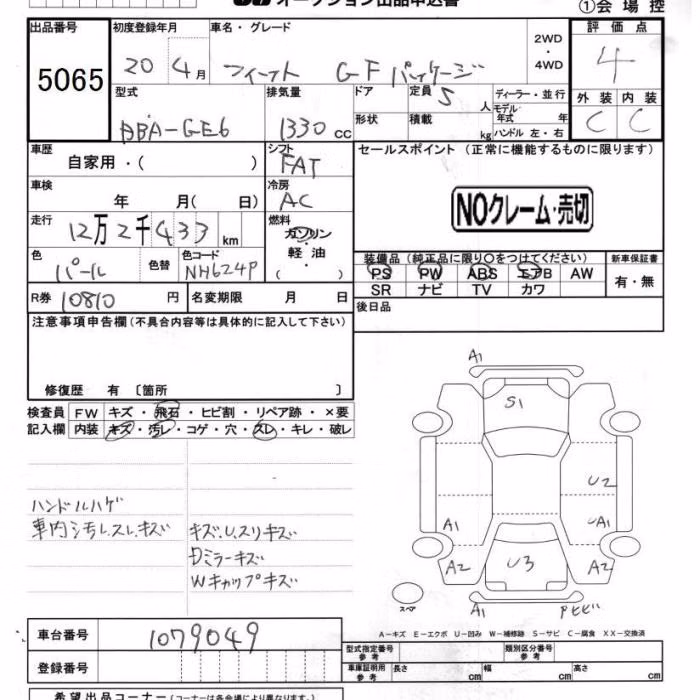 オークション出品申込書
①会場控
出品番号 初度登録年月 車名・グレード 2WD・4WD 評価点
5065 20 4月 フィット GFパッケージ 4
型式 排気量 ドア 定員 5人 ディーラー・並行 外装 内装
DBA-GE6 1330cc 形状 積載 kg モデル年式 年 ハンドル 左・右 C C
車歴 自家用・( ) シフト FAT
セールスポイント (正常に機能するものに限ります)
車検 年 月( 日) 冷房 AC
NOクレーム・売切
走行 12万2千433km 燃料 ガソリン・軽油( )
色 パール 色替 色コード NH624P
装備品 (純正品に限り○をつけてください) 新車保証書
PS PW ABS エアB AW 有・無
SR ナビ TV カワ
R券 10810円 名変期限 月 日
後日品
注意事項申告欄(不具合内容等は具体的に記入して下さい)
修復歴 有〔箇所 〕
検査員 FW キズ・飛石・ヒビ割・リペア跡・×要
記入欄 内装 キズ・汚レ・コゲ・穴・スレ・キレ・破レ
ハンドルハゲ
車内シミ、汚レ、スレ、キズ
キズ、U、スリキズ
Dミラーキズ
Wキャップキズ
A1
S1
U2
A1 UA1
A2 U3 A2
A1 Pビビ
スペア
A-キズ E-エクボ U-凹み W-補修跡 S-サビ C-腐食 XX-交換済
車台番号 1079049
登録番号
型式指定番号 参考 類別区分番号 参考
車庫証明用 参考 長さ cm 幅 cm 高さ cm
希望出品コーナー(コーナーは各会場により異なります)